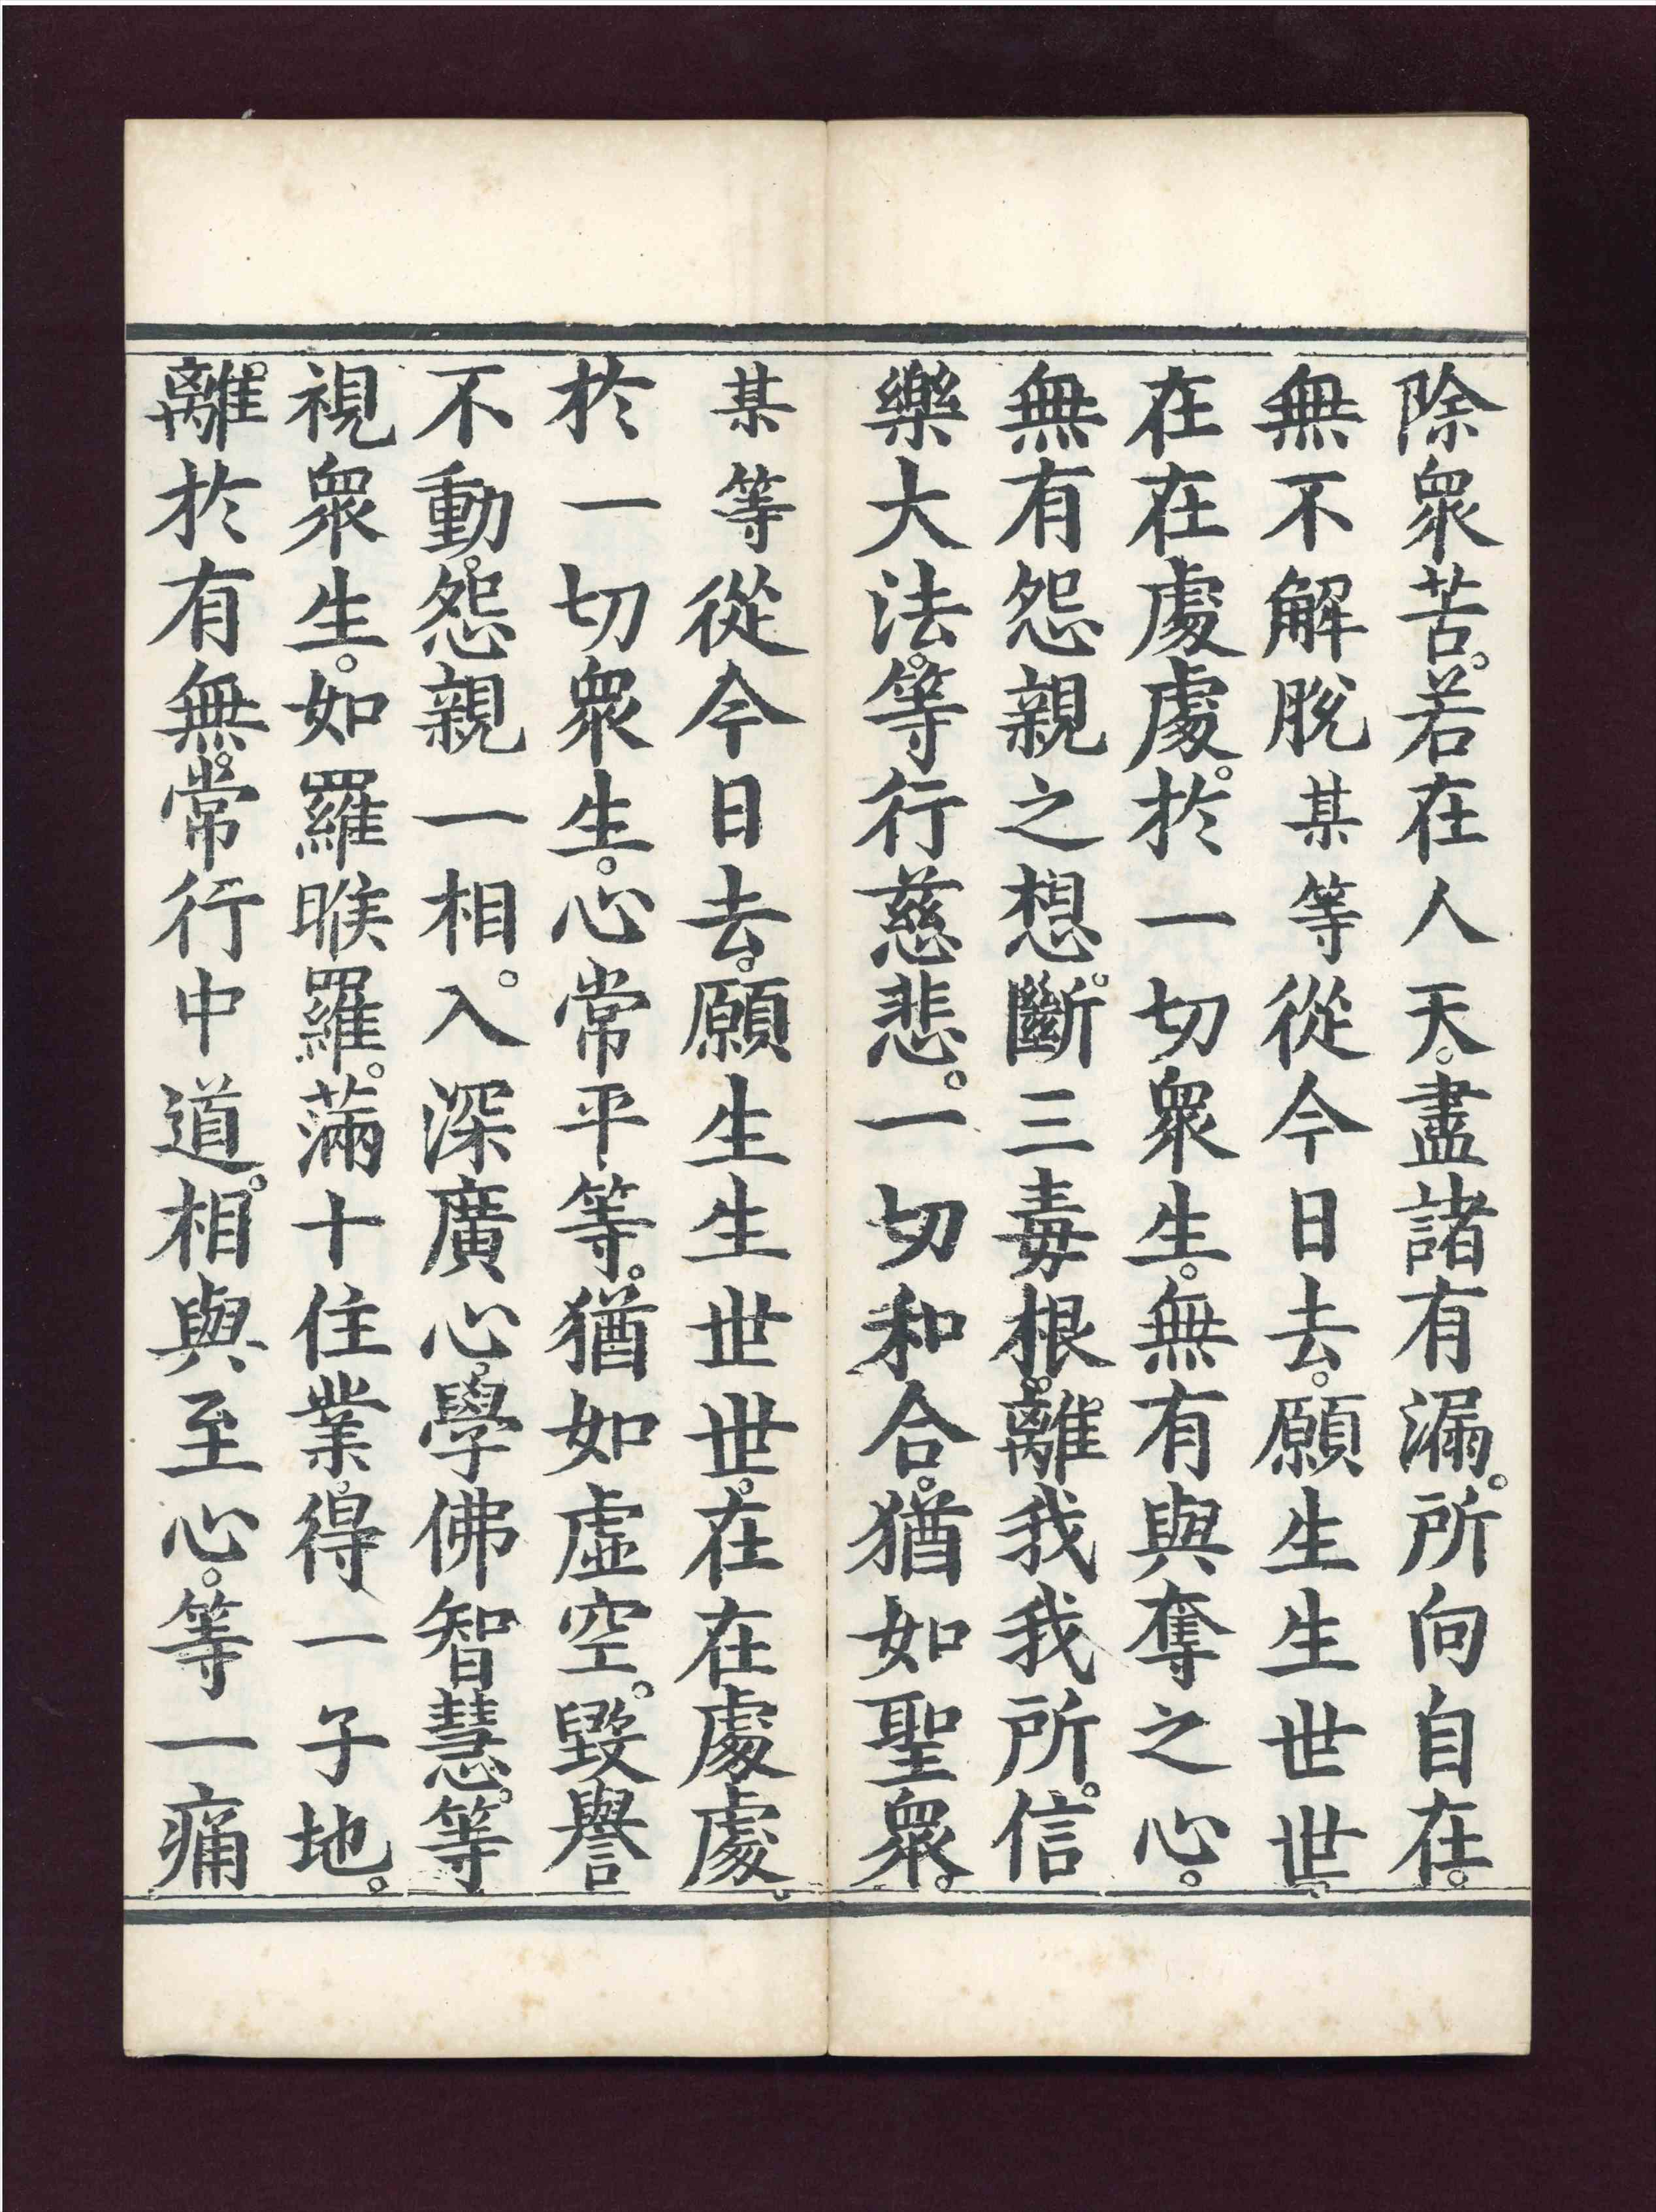 除衆苦。若在人天。盡諸有漏。所向自在。
無不解脫某等從今日去。願生生世世。
在在處處。於一切衆生。無有與奪之心。
無有怨親之想。斷三毒根。離我我所。信
樂大法。等行慈悲。一切和合。猶如聖衆。
某等從今日去。願生生世世。在在處處。
於一切衆生。心常平等。猶如虛空。毀譽
不動。怨親一相。入深廣心。學佛智慧。等
視衆生。如羅睺羅。滿十住業。得一子地。
離於有無。常行中道。相與至心。等一痛